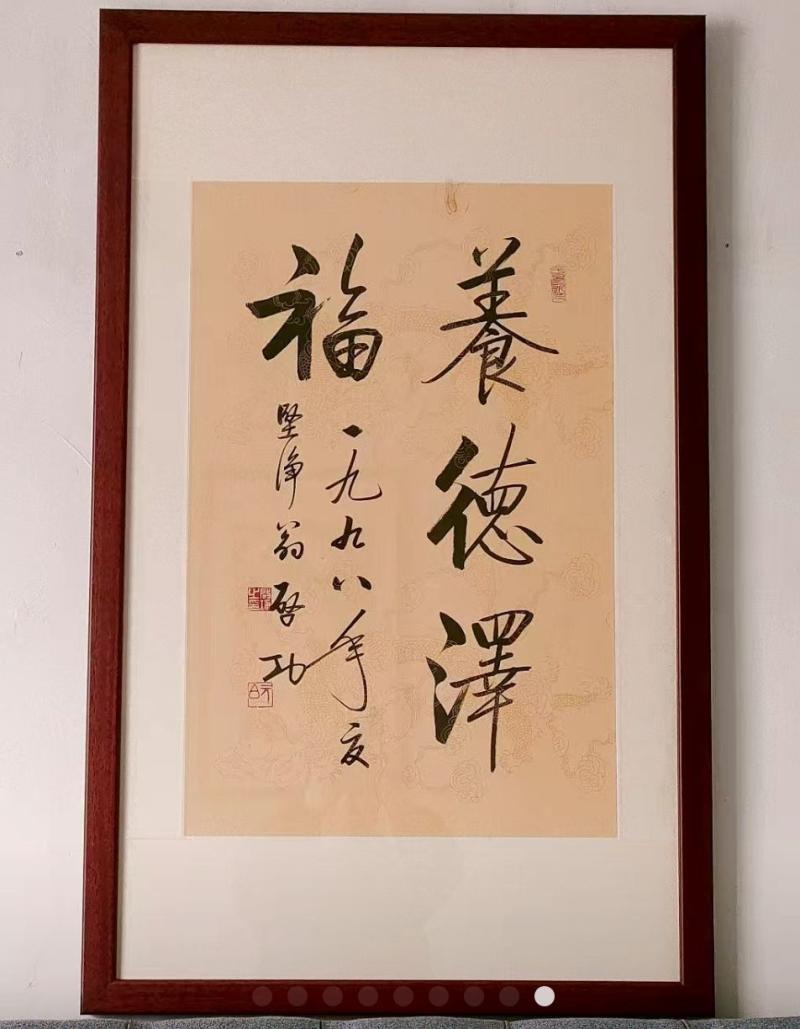 養德澤
福
一九九八年夏
堅净翁啓功
元白